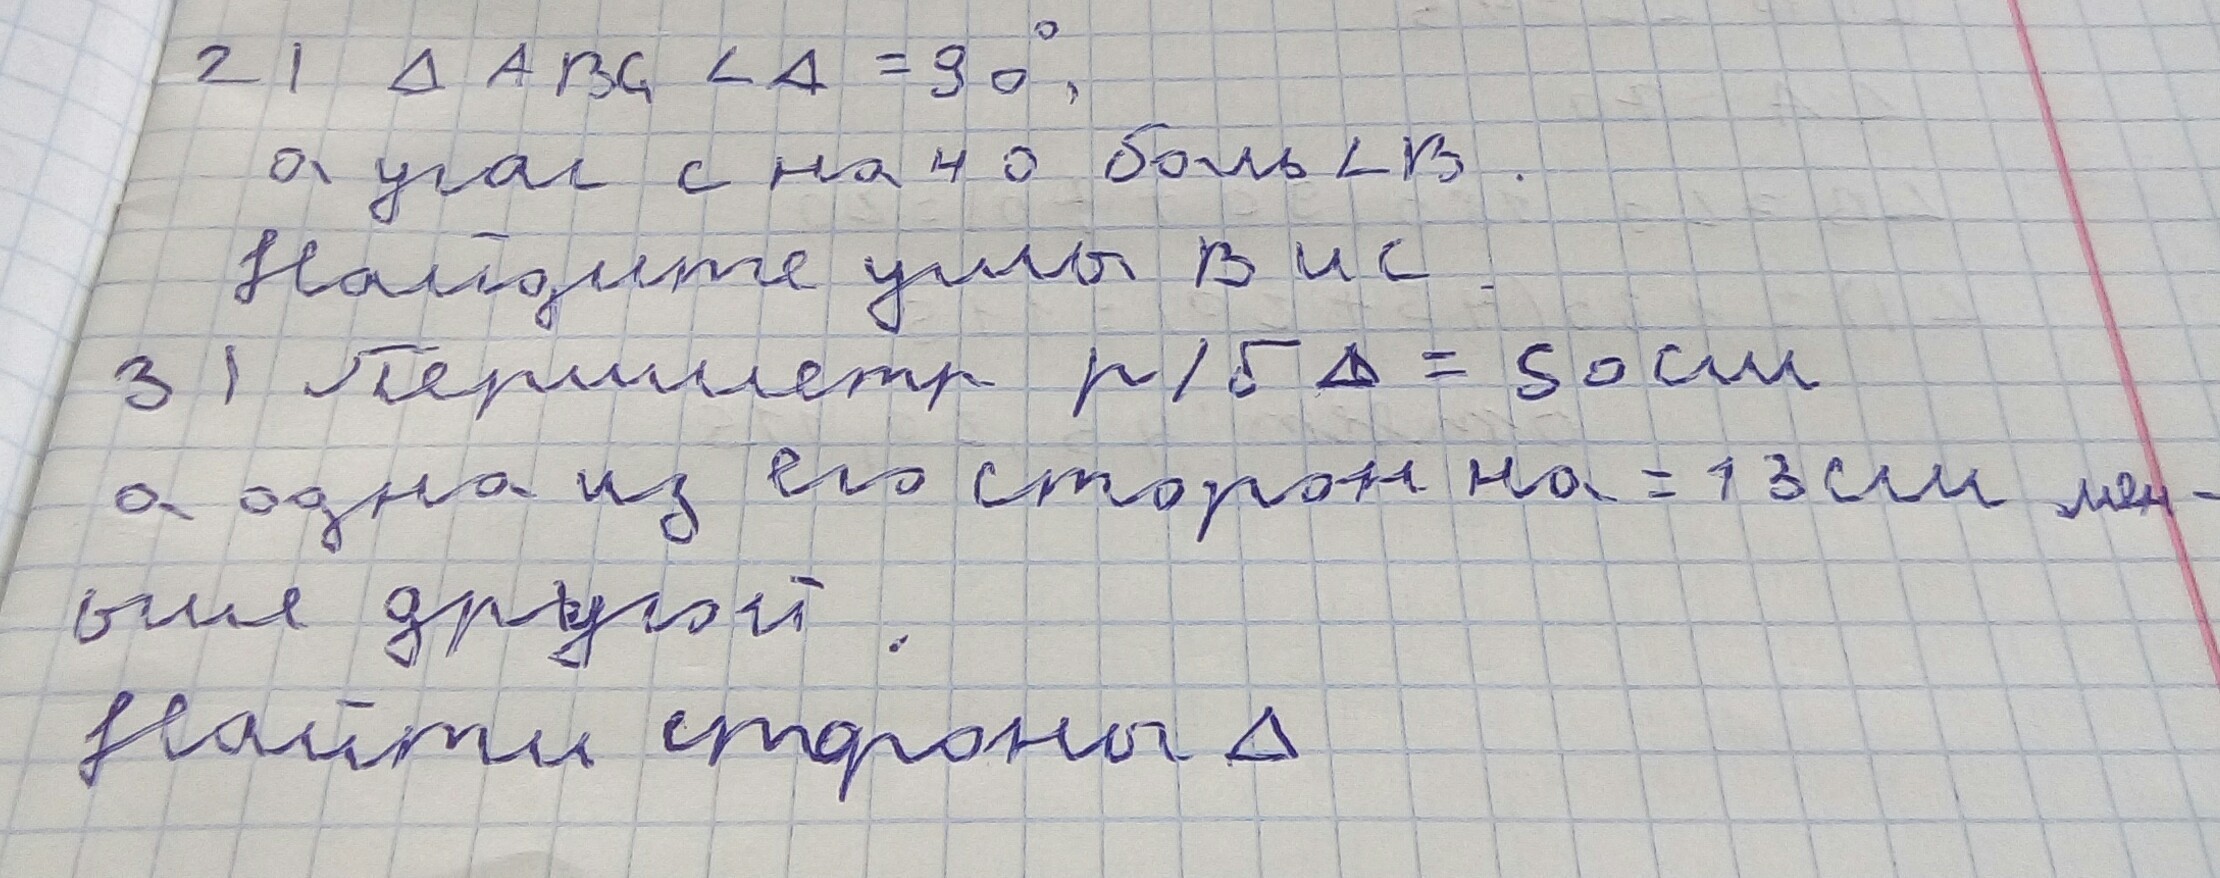 2) Δ ABC, ∠A = 90°,
а угал с на 40 боль ∠B.
Найдите углы B и С.
3) Периметр р/б Δ = 50см
а одна из его сторон на = 13см мен-
ьше другой.
Найти стороны Δ